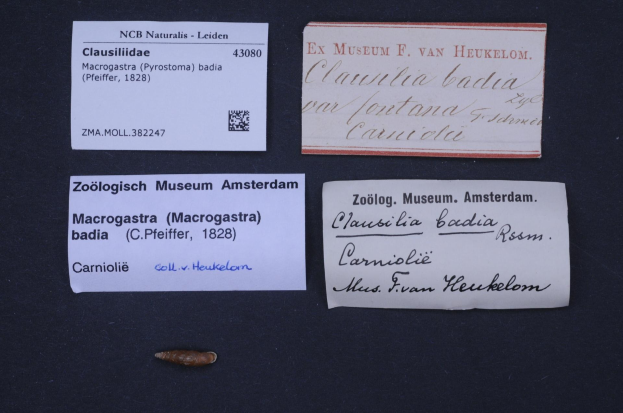 NCB Naturalis - Leiden
Clausiliidae 43080
Macrogastra (Pyrostoma) badia
(Pfeiffer, 1828)
ZMA.MOLL.382247
EX MUSEUM F. VAN HEUKELOM.
Clausilia badia
var fontana
Carniolië
Zoölogisch Museum Amsterdam
Macrogastra (Macrogastra)
badia (C.Pfeiffer, 1828)
Carniolië coll. v. Heukelom
Zoölog. Museum. Amsterdam.
Clausilia badia Rssm.
Carniolië
Mus. F. van Heukelom